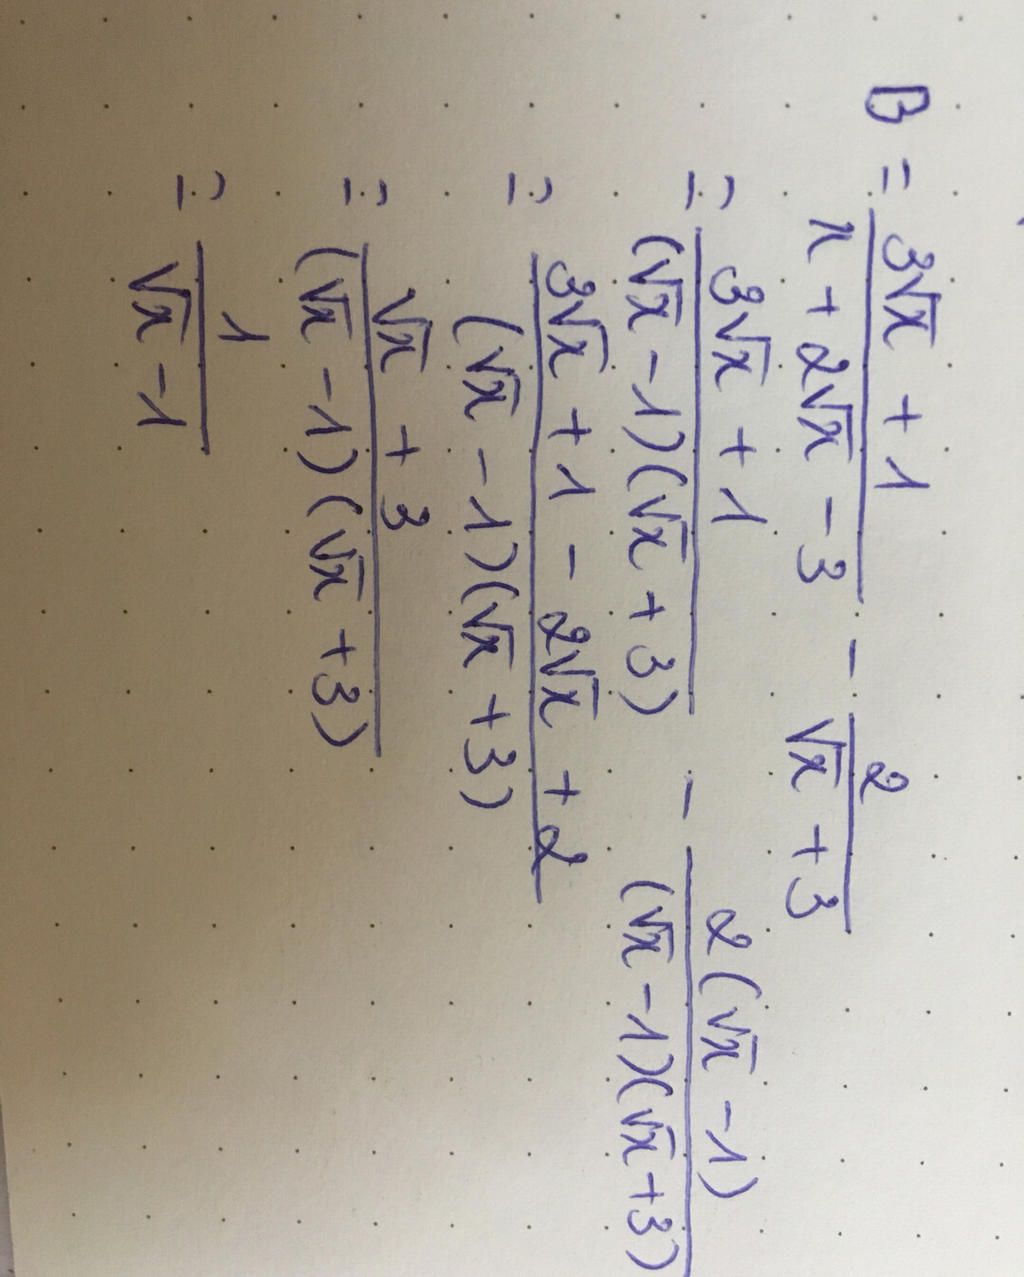 B = \frac{3\sqrt{x} + 1}{x + 2\sqrt{x} - 3} - \frac{2}{\sqrt{x} + 3}
= \frac{3\sqrt{x} + 1}{(\sqrt{x} - 1)(\sqrt{x} + 3)} - \frac{2(\sqrt{x} - 1)}{(\sqrt{x} - 1)(\sqrt{x} + 3)}
= \frac{3\sqrt{x} + 1 - 2\sqrt{x} + 2}{(\sqrt{x} - 1)(\sqrt{x} + 3)}
= \frac{\sqrt{x} + 3}{(\sqrt{x} - 1)(\sqrt{x} + 3)}
= \frac{1}{\sqrt{x} - 1}